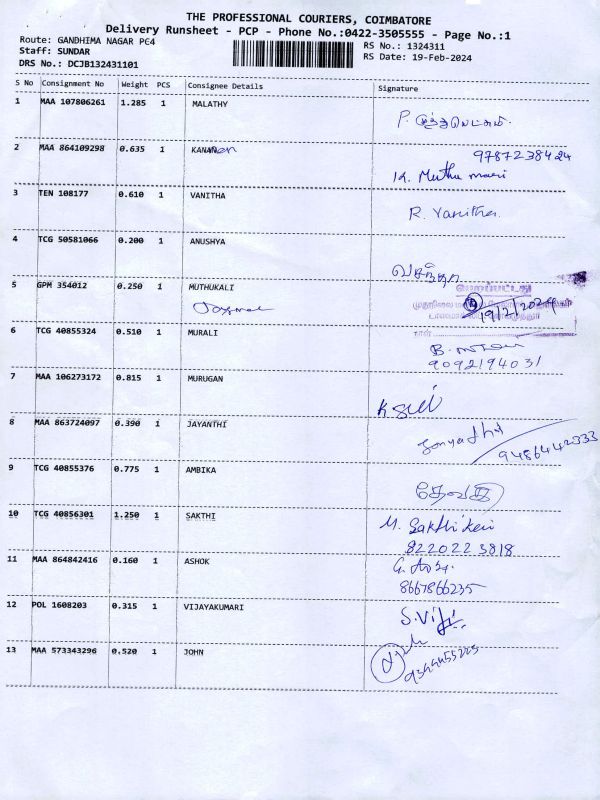 THE PROFESSIONAL COURIERS, COIMBATORE
Delivery Runsheet - PCP - Phone No.:0422-3505555 - Page No.:1
Route: GANDHIMA NAGAR PC4
RS No.: 1324311
Staff: SUNDAR
RS Date: 19-Feb-2024
DRS No.: DCJB132431101
S No Consignment No Weight PCS Consignee Details Signature
1 MAA 107806261 1.285 1 MALATHY
P.
2 MAA 864109298 0.635 1 9787238424
K. Muthu mari
3 TEN 108177 0.610 1 VANITHA
R. Vanitha
4 TCG 50581066 0.200 1 ANUSHYA
வசந்தா
5 GPM 354012 0.250 1 MUTHUKALI
பெறப்பட்டது
19/2/2024
நாள்
6 TCG 40855324 0.510 1 MURALI
9092194031
7 MAA 106273172 0.815 1 MURUGAN
8 MAA 863724097 0.390 1 JAYANTHI
9486442333
9 TCG 40855376 0.775 1 AMBIKA
தேவகி
10 TCG 40856301 1.250 1 SAKTHI
M. Sakthi
8220223818
11 MAA 864842416 0.160 1 ASHOK
8667866235
12 POL 1608203 0.315 1 VIJAYAKUMARI
S. Viji
13 MAA 573343296 0.520 1 JOHN